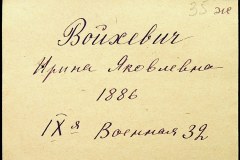 35 эже
Войхевич
Ирина Яковлевна
1886
IXя Военная 32